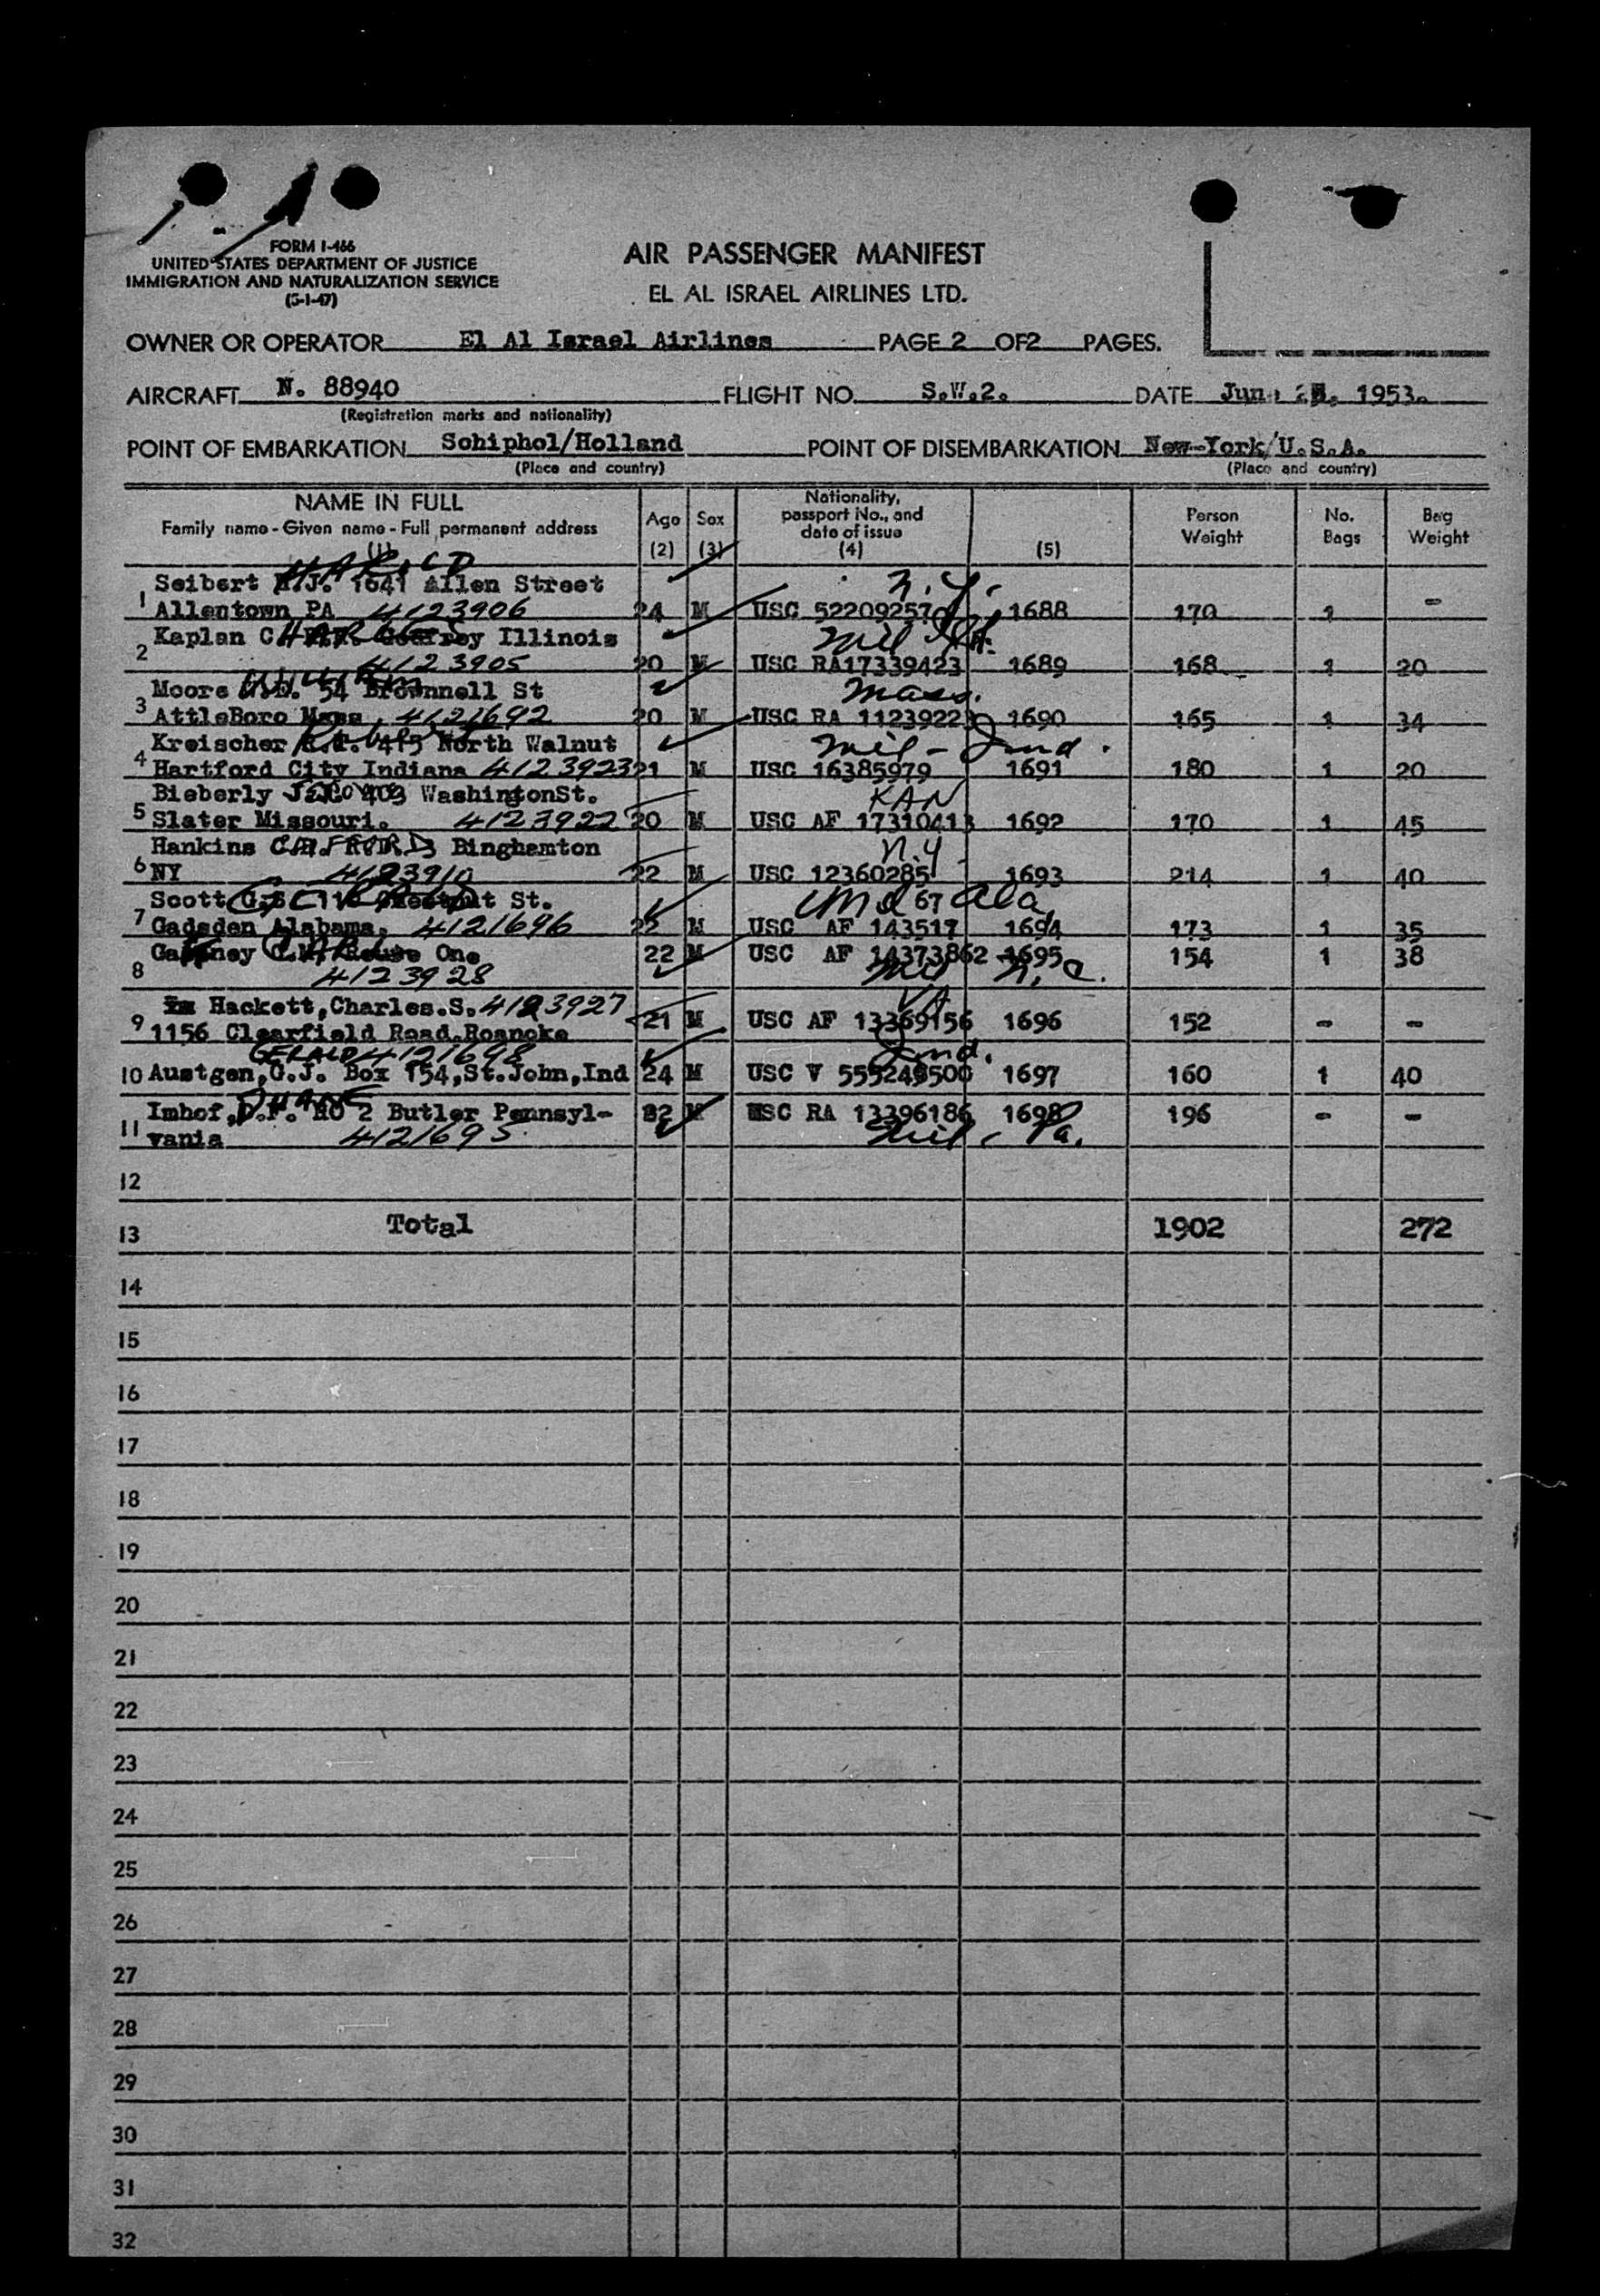 FORM I-466
UNITED STATES DEPARTMENT OF JUSTICE
IMMIGRATION AND NATURALIZATION SERVICE
(5-1-47)
AIR PASSENGER MANIFEST
EL AL ISRAEL AIRLINES LTD.
OWNER OR OPERATOR El Al Israel Airlines PAGE 2 OF 2 PAGES.
AIRCRAFT N. 88940 FLIGHT NO. S.W.2. DATE Jun. 1953.
(Registration marks and nationality)
POINT OF EMBARKATION Schiphol/Holland POINT OF DISEMBARKATION New-York/U.S.A.
(Place and country) (Place and country)
NAME IN FULL
Family name - Given name - Full permanent address
(1)
Age (2) Sex (3) Nationality, passport No., and date of issue (4) (5) Person Weight No. Bags Bag Weight
HAROLD N.Y.
Seibert H.J. 1641 Allen Street
1 Allentown PA 4123906 24 M USC 52209257 1688 170 1 -
Kaplan C. Godfrey Illinois mil Ill.
2 4123905 20 M USC RA17339423 1689 168 1 20
William
Moore 54 Brownnell St mass.
3 AttleBoro Mass, 4121692 20 M USC RA 1123922 1690 165 1 34
Kreischer 415 North Walnut mil - Ind.
4 Hartford City Indiana 4123923 21 M USC 16385979 1691 180 1 20
Bieberly 403 WashingtonSt. KAN
5 Slater Missouri. 4123922 20 M USC AF 17310413 1692 170 1 45
Hankins Binghamton N.Y.
6 NY 4123910 22 M USC 12360285 1693 214 1 40
Scott St. 67 Ala
7 Gadsden Alabama. 4121696 22 M USC AF 143517 1694 173 1 35
One 22 M USC AF 14373862 1695 154 1 38
8 4123928 mil N.C.
Hackett, Charles.S. 4123927 VA
9 1156 Clearfield Road.Roanoke 21 M USC AF 13369156 1696 152 - -
GERALD 4121698 Ind.
10 Austgen, G.J. Box 154, St.John, Ind 24 M USC V 555249500 1697 160 1 40
DUANE
Imhof, D.F. 2 Butler Pennsyl- 22 M USC RA 13396186 1698 196 - -
11 vania 4121695 mil - Pa.
12
13 Total 1902 272
14
15
16
17
18
19
20
21
22
23
24
25
26
27
28
29
30
31
32